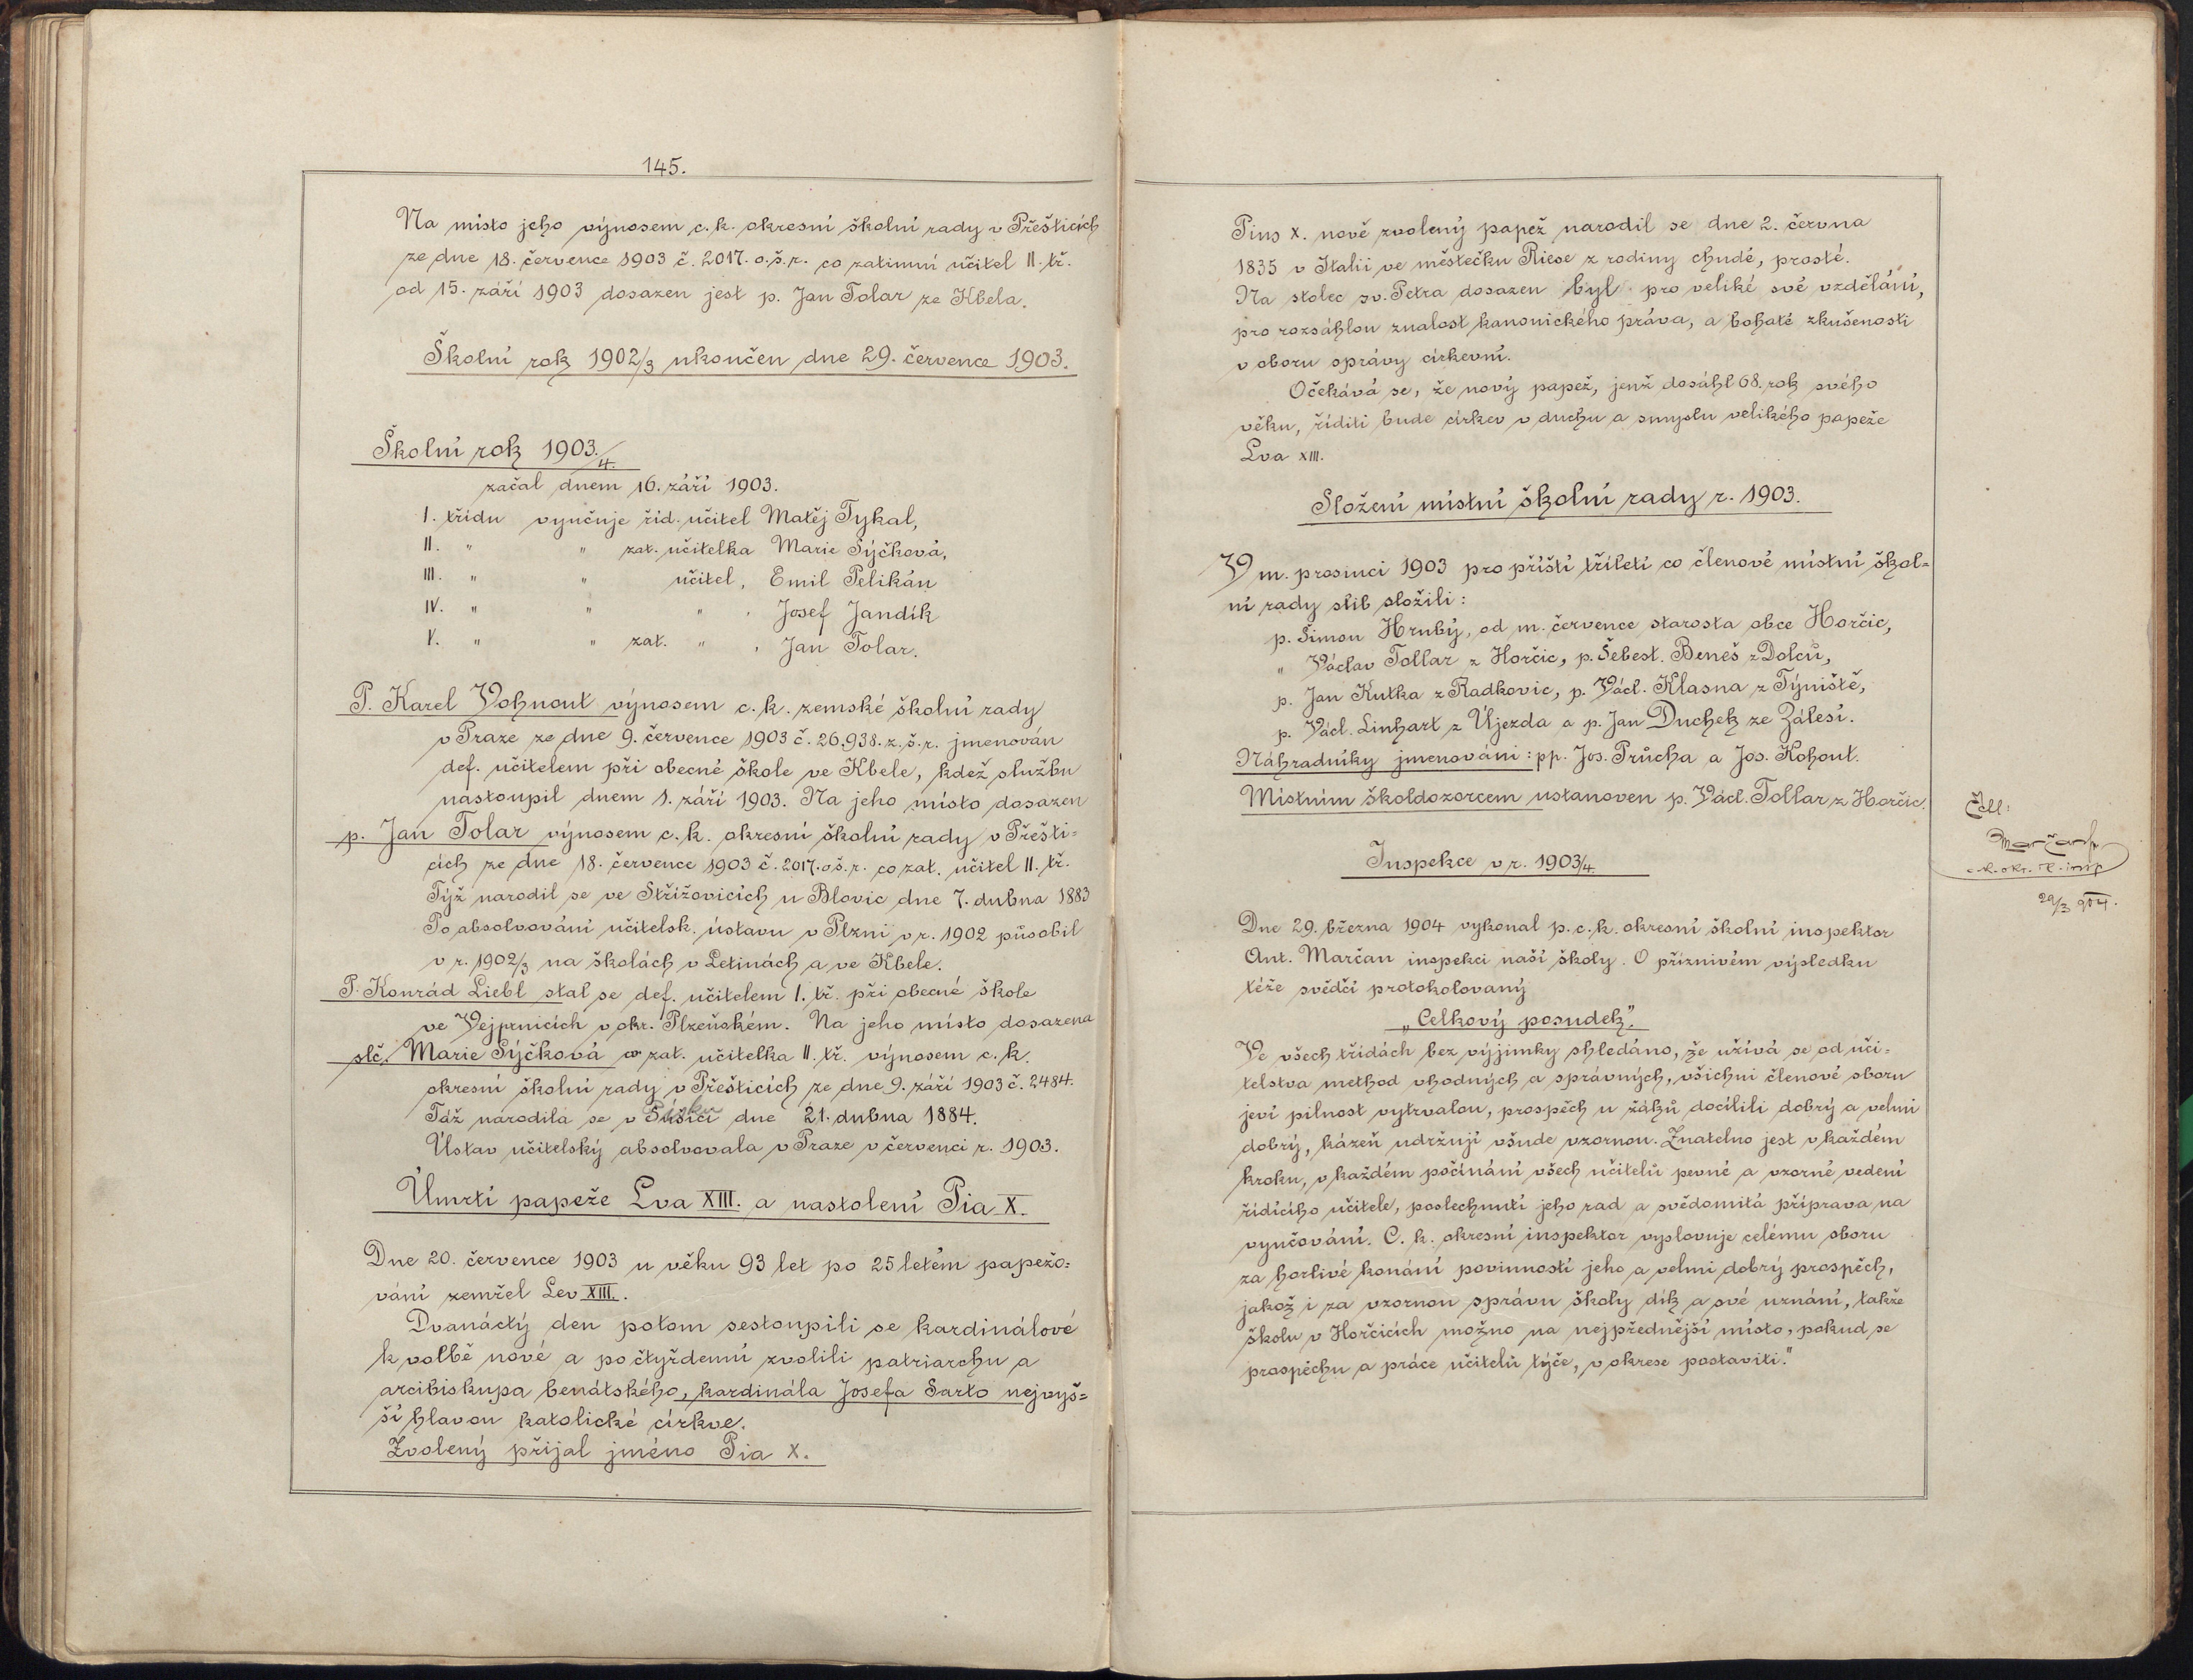 145.
Na místo jeho výnosem c.k. okresní školní rady v Přešticích
ze dne 18. července 1903 č. 2017. o.š.r. co zatimní učitel II. tř.
od 15. září 1903 dosazen jest p. Jan Tolar ze Kbela.
Školní rok 1902/3 ukončen dne 29. července 1903.
Školní rok 1903./4.
začal dnem 16. září 1903.
I. třídu vyučuje říd. učitel Matěj Tykal,
II. " " zat. učitelka Marie Sýčková,
III. " " učitel, Emil Pelikán
IV. " " " , Josef Jandík
V. " " zat. " , Jan Tolar.
P. Karel Vohnout výnosem c.k. zemské školní rady
v Praze ze dne 9. července 1903 č. 26.938. z.š.r. jmenován
def. učitelem při obecné škole ve Kbele, kdež službu
nastoupil dnem 1. září 1903. Na jeho místo dosazen
p. Jan Tolar výnosem c.k. okresní školní rady v Přešti=
cích ze dne 18. července 1903 č. 2017. o.š.r. co zat. učitel II. tř.
Týž narodil se ve Střížovicích u Blovic dne 7. dubna 1883
Po absolvování učitelsk. ústavu v Plzni v r. 1902 působil
v r. 1902/3 na školách v Letinách a ve Kbele.
P. Konrád Liebl stal se def. učitelem I. tř. při obecné škole
ve Vejprnicích v okr. Plzeňském. Na jeho místo dosazena
slč. Marie Sýčková co zat. učitelka II. tř. výnosem c.k.
okresní školní rady v Přešticích ze dne 9. září 1903 č. 2484.
Táž narodila se v Písku dne 21. dubna 1884.
Ústav učitelský absolvovala v Praze v červenci r. 1903.
Úmrtí papeže Lva XIII. a nastolení Pia X.
Dne 20. července 1903 u věku 93 let po 25 letém papežo=
vání zemřel Lev XIII.
Dvanáctý den potom sestoupili se kardinálové
k volbě nové a po čtyřdenní zvolili patriarchu a
arcibiskupa benátského, kardinála Josefa Sarto nejvyš=
ší hlavou katolické církve.
Zvolený přijal jméno Pia X.
Pius X. nově zvolený papež narodil se dne 2. června
1835 v Italii ve městečku Riese z rodiny chudé, prosté.
Na stolec sv. Petra dosazen byl pro veliké své vzdělání,
pro rozsáhlou znalost kanonického práva, a bohaté zkušenosti
v oboru správy církevní.
Očekává se, že nový papež, jenž dosáhl 68. rok svého
věku, říditi bude církev v duchu a smyslu velikého papeže
Lva XIII.
Složení místní školní rady r. 1903.
V m. prosinci 1903 pro příští tříletí co členové místní škol=
ní rady slib složili:
p. Šimon Hrubý, od m. července starosta obce Horčic,
" Václav Tollar z Horčic, p. Šebest. Beneš z Dolců,
p. Jan Kutka z Radkovic, p. Václ. Klasna z Týniště,
p. Václ. Linhart z Újezda a p. Jan Duchek ze Zálesí.
Náhradníky jmenováni: pp. Jos. Průcha a Jos. Kohout.
Místním školdozorcem ustanoven p. Václ. Tollar z Horčic.
Inspekce v r. 1903/4.
Dne 29. března 1904 vykonal p. c.k. okresní školní inspektor
Ant. Marčan inspekci naší školy. O příznivém výsledku
téže svědčí protokolovaný
„Celkový posudek".
Ve všech třídách bez výjimky shledáno, že užívá se od uči=
telstva method vhodných a správných, všichni členové sboru
jeví pilnost vytrvalou, prospěch u žáků docílili dobrý a velmi
dobrý, kázeň udržují všude vzornou. Znatelno jest v každém
kroku, v každém počínání všech učitelů pevné a vzorné vedení
řídícího učitele, poslechnutí jeho rad a svědomitá příprava na
vyučování. C. k. okresní inspektor vyslovuje celému sboru
za horlivé konání povinností jeho a velmi dobrý prospěch,
jakož i za vzornou správu školy dík a své uznání, takže
školu v Horčicích možno na nejpřednější místo, pokud se
prospěchu a práce učitelů týče, v okrese postaviti."
Četl:
Marčan
c.k. okr. šk. insp
29/3 904.